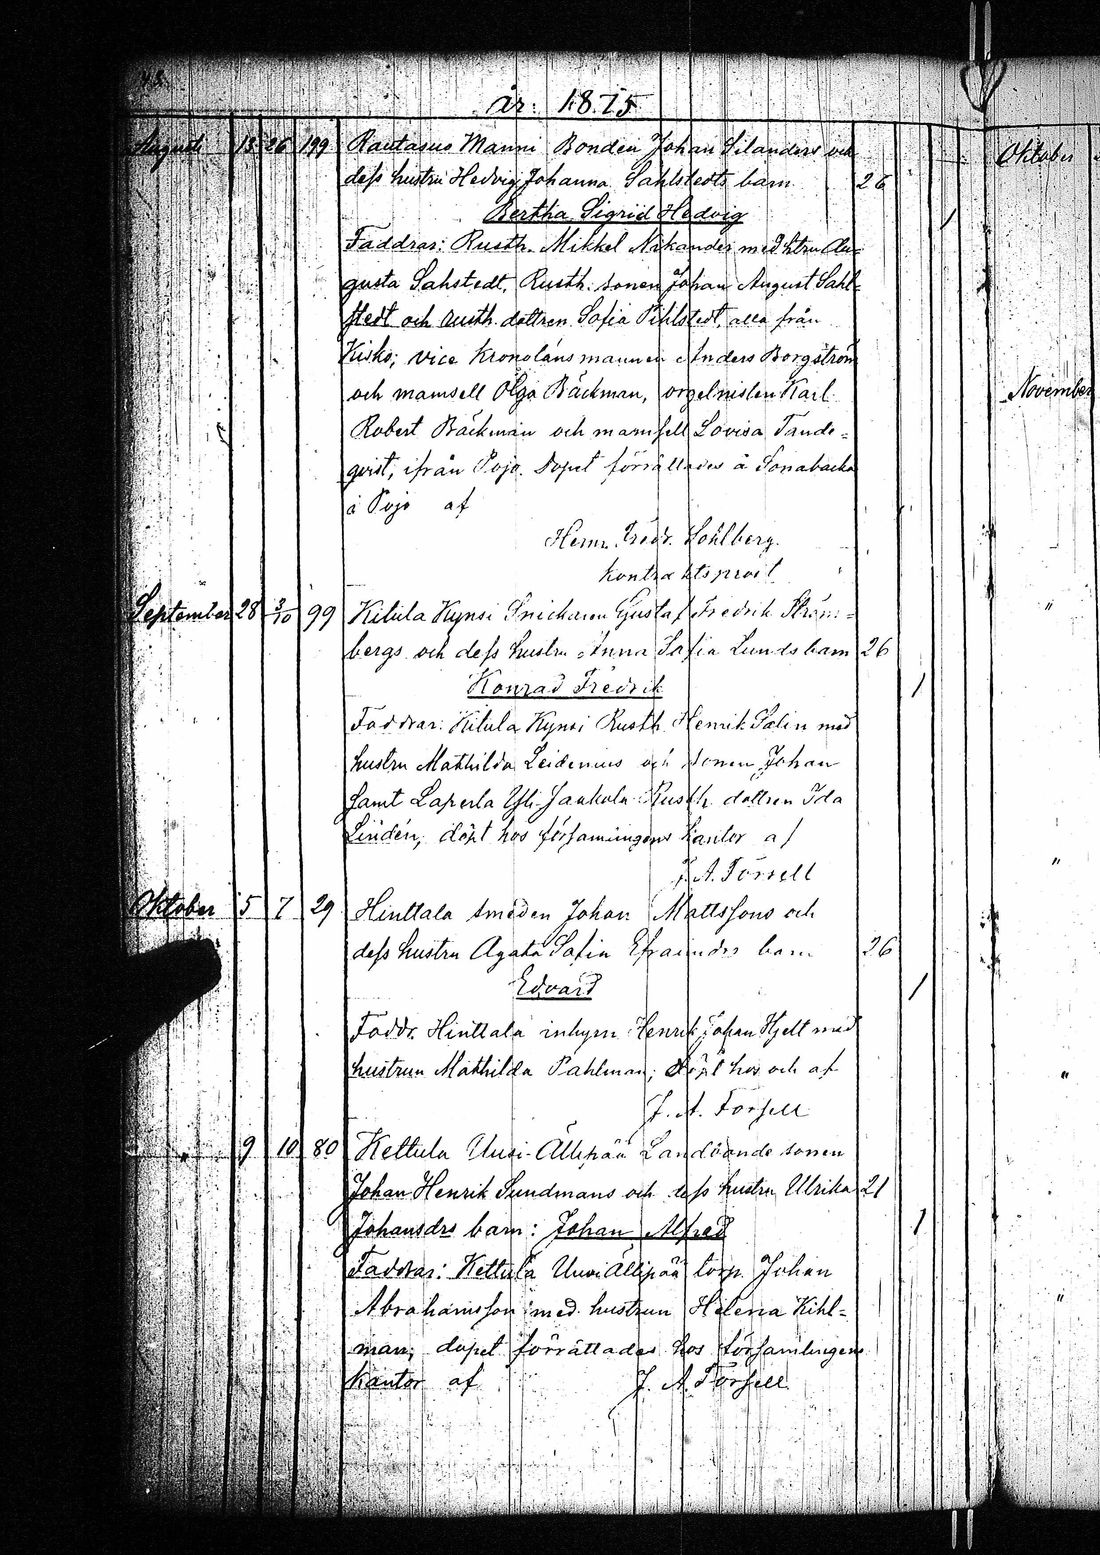 42.
år: 1875
Augusti 13 26 199 Rautasuo Manni Bonden Johan Silanders och
dess hustru Hedvig Johanna Sahlstedts barn 26
Bertha Sigrid Hedvig
Faddrar: Rusth. Mikkel Nikander med htru Au=
gusta Sahstedt, Rusth. sonen Johan August Sahl=
stedt och rusth. dottren Sofia Pihlstedt, alla från
Kisko; vice Kronolänsmannen Anders Borgström
och mamsell Olga Bäckman, orgelnisten Karl
Robert Bäckman och mamsell Lovisa Tande=
qvist, ifrån Pojo. Dopet förrättades å Sonabacka
i Pojo af
Henr. Fredr. Sohlberg.
kontraktsprost
September 28 3/10 99 Kitula Kynsi Snickaren Gustaf Fredrik Ström=
bergs och dess hustru Anna Sofia Lunds barn 26
Konrad Fredrik 1
Faddrar: Kitula Kynsi Rusth. Henrik Salin med
hustru Mathilda Leidenius och sonen Johan
samt Laperla Yli-Jaakola Rusth. dottren Ida
Lindén; döpt hos församlingens kantor af
J. A. Forsell
Oktober 5 7 29 Hinttala smeden Johan Mattssons och
dess hustru Agata Sofia Efraimdrs barn 26
Edvard 1
Faddr. Hinttala inhysn Henrik Johan Hjelt med
hustrun Mathilda Pahlman; döpt hos och af
J. A. Forsell
9 10 80 Kettula Uusi-Ällipää Landbonde sonen
Johan Henrik Sundmans och dess hustru Ulrika 21
Johansdrs barn: Johan Alfred 1
Faddrar: Kettula Uusi Ällipää torp. Johan
Abrahamsson med hustrun Helena Kihl=
man; dopet förrättades hos församlingens
kantor af J. A. Forsell
Oktober
November
"
"
"
"